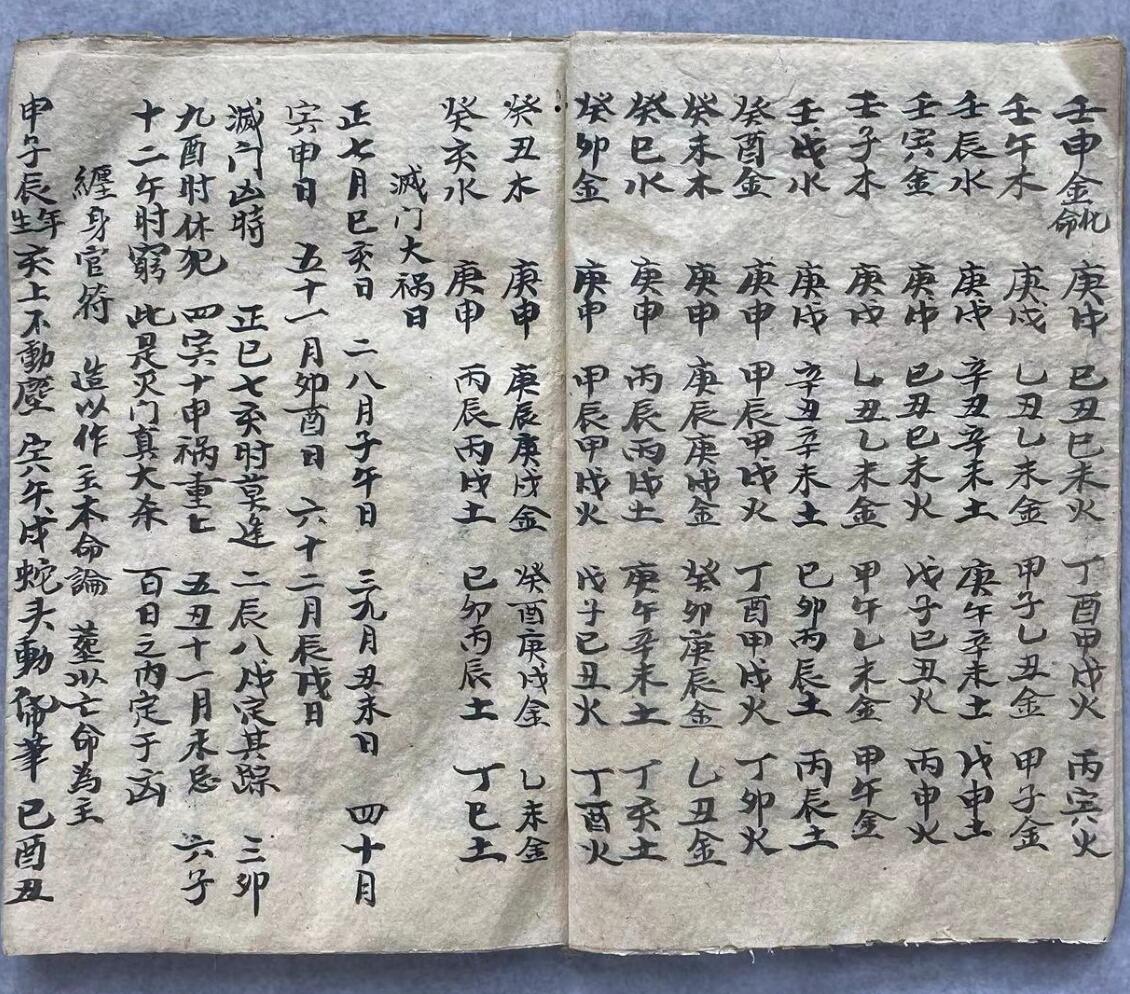 壬申金命 庚戌 己丑己未火 丁酉甲戌火 丙寅火
壬午木 庚戌 乙丑乙未金 甲子乙丑金 甲子金
壬辰水 庚戌 辛丑辛未土 庚午辛未土 戊申土
壬寅金 庚戌 己丑己未火 戊子己丑火 丙申火
壬子木 庚戌 乙丑乙未金 甲午乙未金 甲午金
壬戌水 庚戌 辛丑辛未土 己卯丙辰土 丙辰土
癸酉金 庚申 甲辰甲戌火 丁酉甲戌火 丁卯火
癸未木 庚申 庚辰庚戌金 癸卯庚辰金 乙丑金
癸巳水 庚申 丙辰丙戌土 庚午辛未土 丁亥土
癸卯金 庚申 甲辰甲戌火 戊子己丑火 丁酉火
癸丑木 庚申 庚辰庚戌金 癸酉庚戌金 乙未金
癸亥水 庚申 丙辰丙戌土 己卯丙辰土 丁巳土
滅门大祸日
正七月巳亥日 二八月子午日 三九月丑未日 四十月
寅申日 五十一月卯酉日 六十二月辰戌日
滅门凶時 正巳七亥时莫逢 二辰八戌定其踪 三卯
九酉时休犯 四寅十申祸重匕 五丑十一月未忌 六子
十二午时窮 此是灭门真大杀 百日之内定于凶
纏身官符 造以作主本命論 塟以亡命為主
申子辰年生亥上不動塵 寅午戌蛇头動 筆 巳酉丑